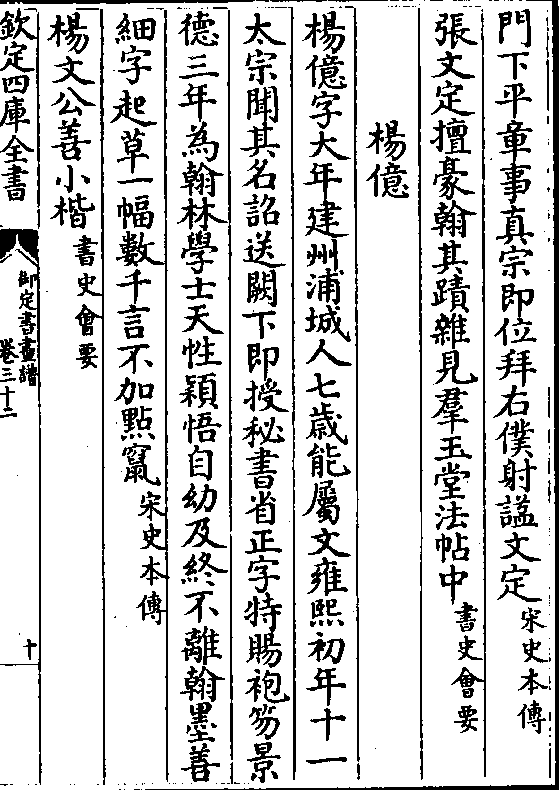 門下平章事真宗即位拜右僕射諡文定宋史本傳
張文定擅豪翰其蹟雜見羣玉堂法帖中書史會要
楊億
楊億字大年建州浦城人七歲能屬文雍熙初年十一
太宗聞其名詔送闕下即授秘書省正字特賜袍笏景
德三年為翰林學士天性穎悟自幼及終不離翰墨善
細字起草一幅數千言不加點竄宋史本傳
楊文公善小楷書史會要
欽定四庫全書
御定書畫譜
卷三十二
十